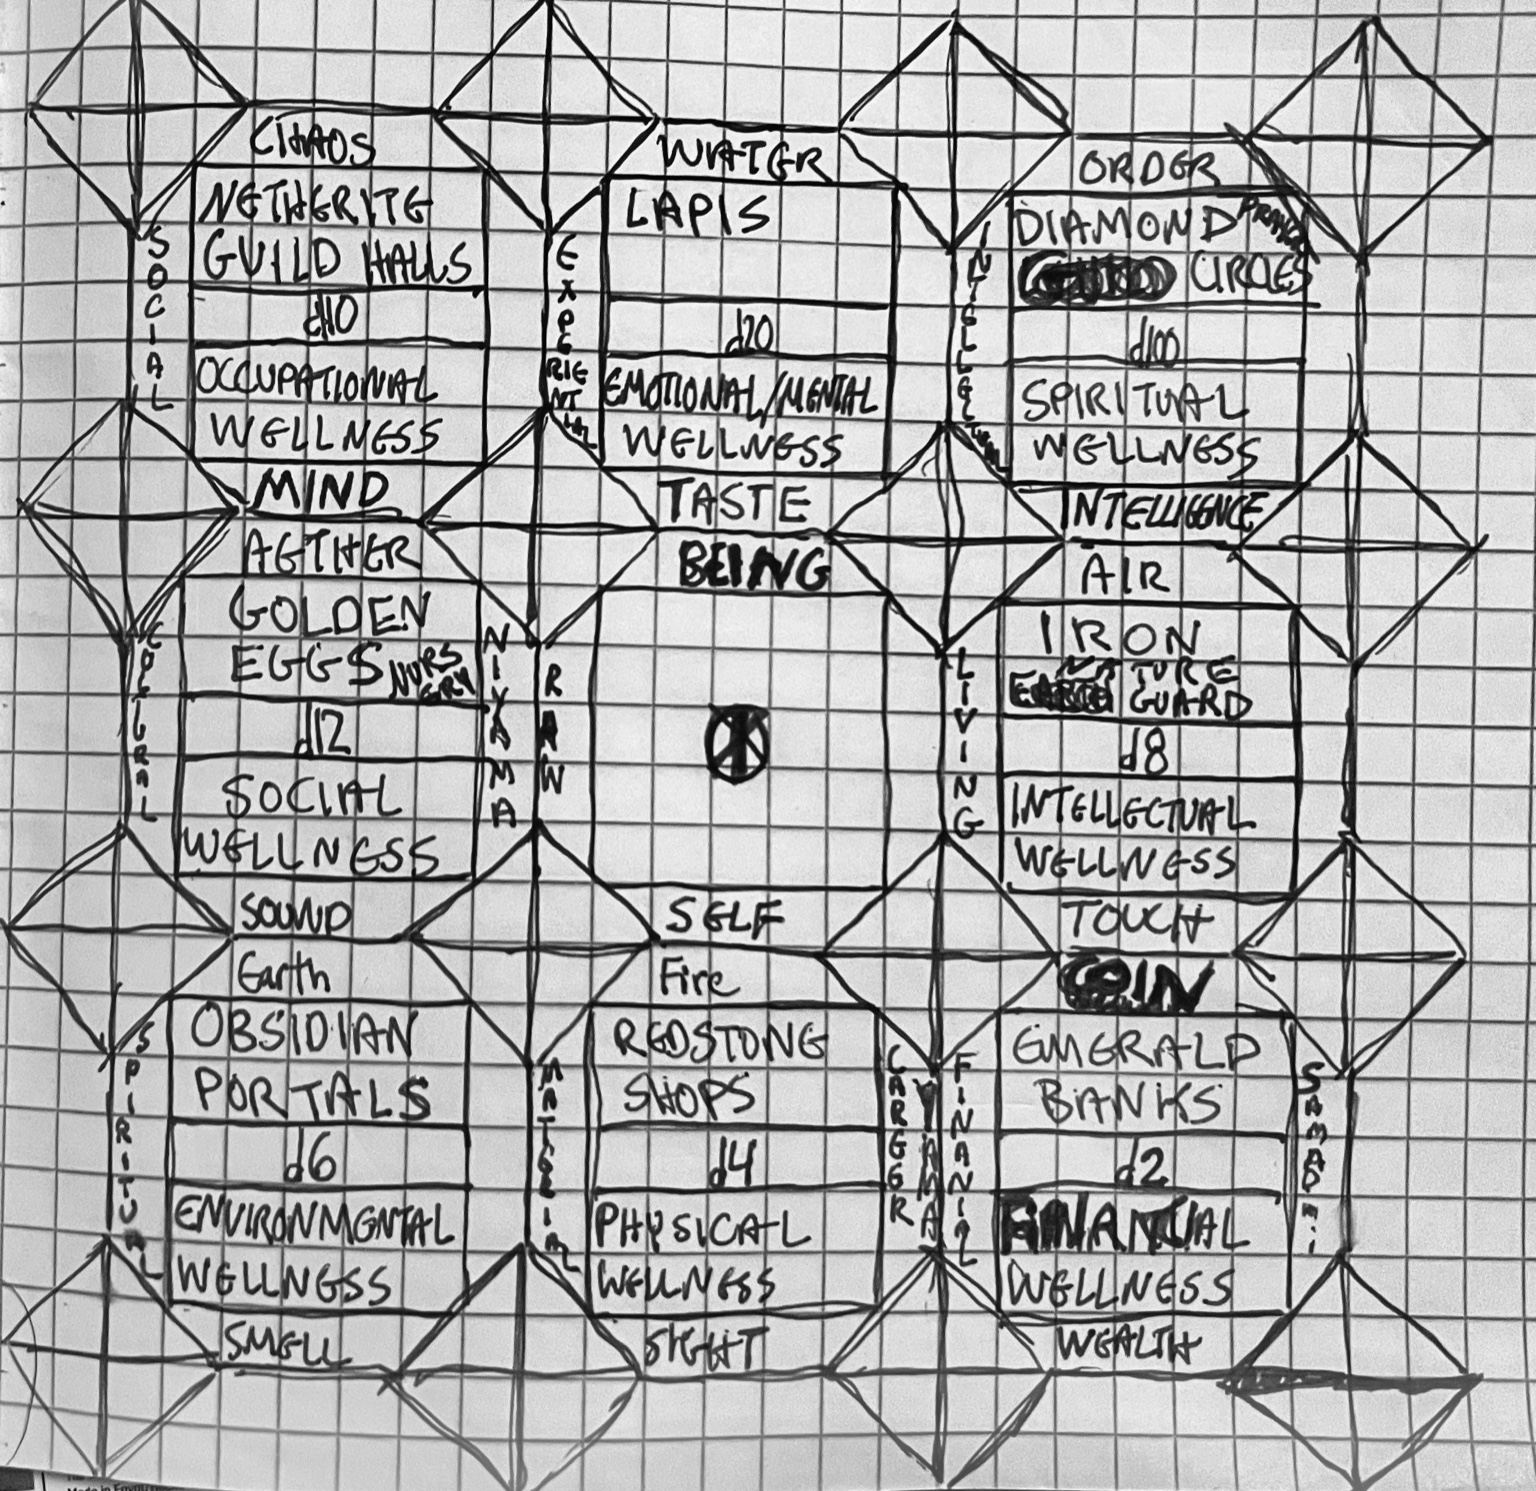 CHAOS
NETHERITE
GUILD HALLS
d10
OCCUPATIONAL
WELLNESS
MIND
SOCIAL
WATER
LAPIS
d20
EMOTIONAL/MENTAL
WELLNESS
TASTE
EXPERIENTIAL
ORDER
DIAMOND
CIRCLES
d100
SPIRITUAL
WELLNESS
INTELLIGENCE
AETHER
GOLDEN
EGGS NURSERY
d12
SOCIAL
WELLNESS
SOUND
NIYAMA
BEING
SELF
RAW
AIR
IRON
NATURE
GUARD
d8
INTELLECTUAL
WELLNESS
TOUCH
LIVING
Earth
OBSIDIAN
PORTALS
d6
ENVIRONMENTAL
WELLNESS
SMELL
SPIRITUAL
Fire
REDSTONE
SHOPS
d4
PHYSICAL
WELLNESS
SIGHT
MATERIAL
CAREER
YAMA
COIN
EMERALD
BANKS
d2
WELLNESS
WEALTH
FINANCIAL
SAMADHI